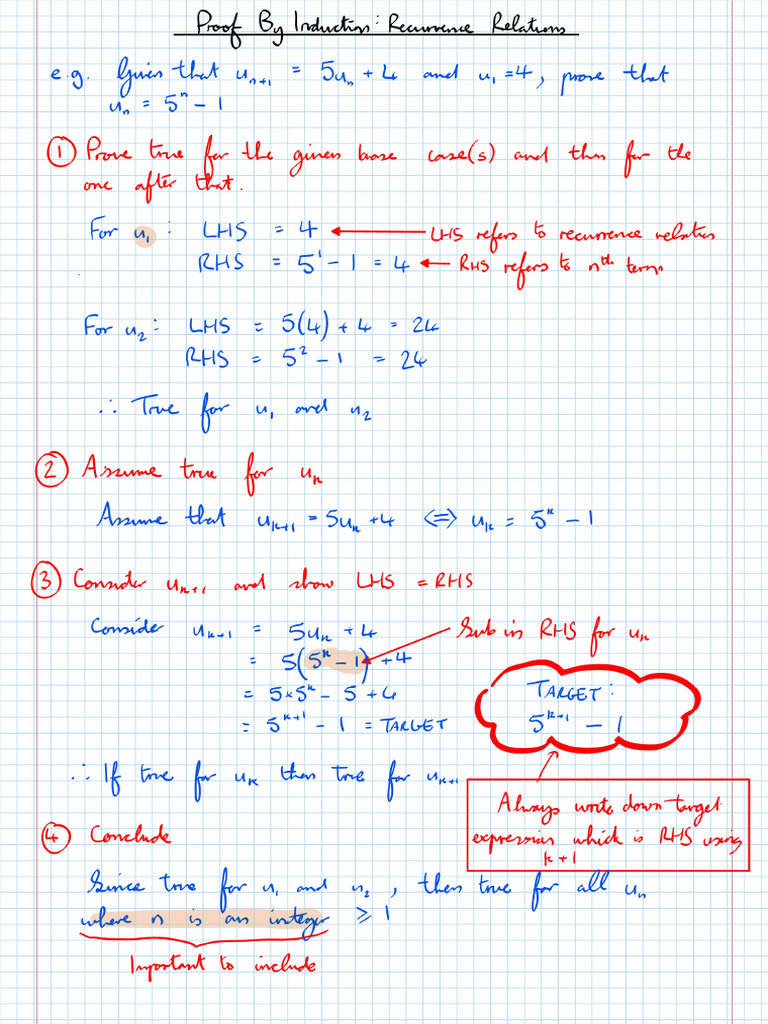 Proof By Induction: Recurrence Relations
e.g. Given that uₙ₊₁ = 5uₙ + 4 and u₁ = 4, prove that
uₙ = 5ⁿ - 1
① Prove true for the given base case(s) and then for the
one after that.
For u₁ : LHS = 4 ← LHS refers to recurrence relation
RHS = 5¹ - 1 = 4 ← RHS refers to nᵗʰ term
For u₂ : LHS = 5(4) + 4 = 24
RHS = 5² - 1 = 24
∴ True for u₁ and u₂
② Assume true for uₖ
Assume that uₖ₊₁ = 5uₖ + 4 ⇔ uₖ = 5ᵏ - 1
③ Consider uₖ₊₁ and show LHS = RHS
Consider uₖ₊₁ = 5uₖ + 4
Sub in RHS for uₖ
= 5(5ᵏ - 1) + 4
= 5×5ᵏ - 5 + 4
= 5ᵏ⁺¹ - 1 = TARGET
TARGET:
5ᵏ⁺¹ - 1
∴ If true for uₖ then true for uₖ₊₁
Always write down target
expression which is RHS using
k+1
④ Conclude
Since true for u₁ and u₂, then true for all uₙ
where n is an integer ⩾ 1
Important to include